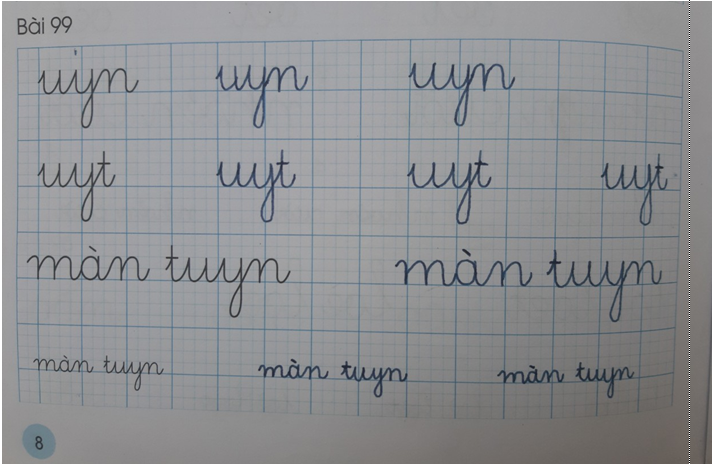 Bài 99
uyn uyn uyn
uyt uyt uyt uyt
màn tuyn màn tuyn
màn tuyn màn tuyn màn tuyn
8